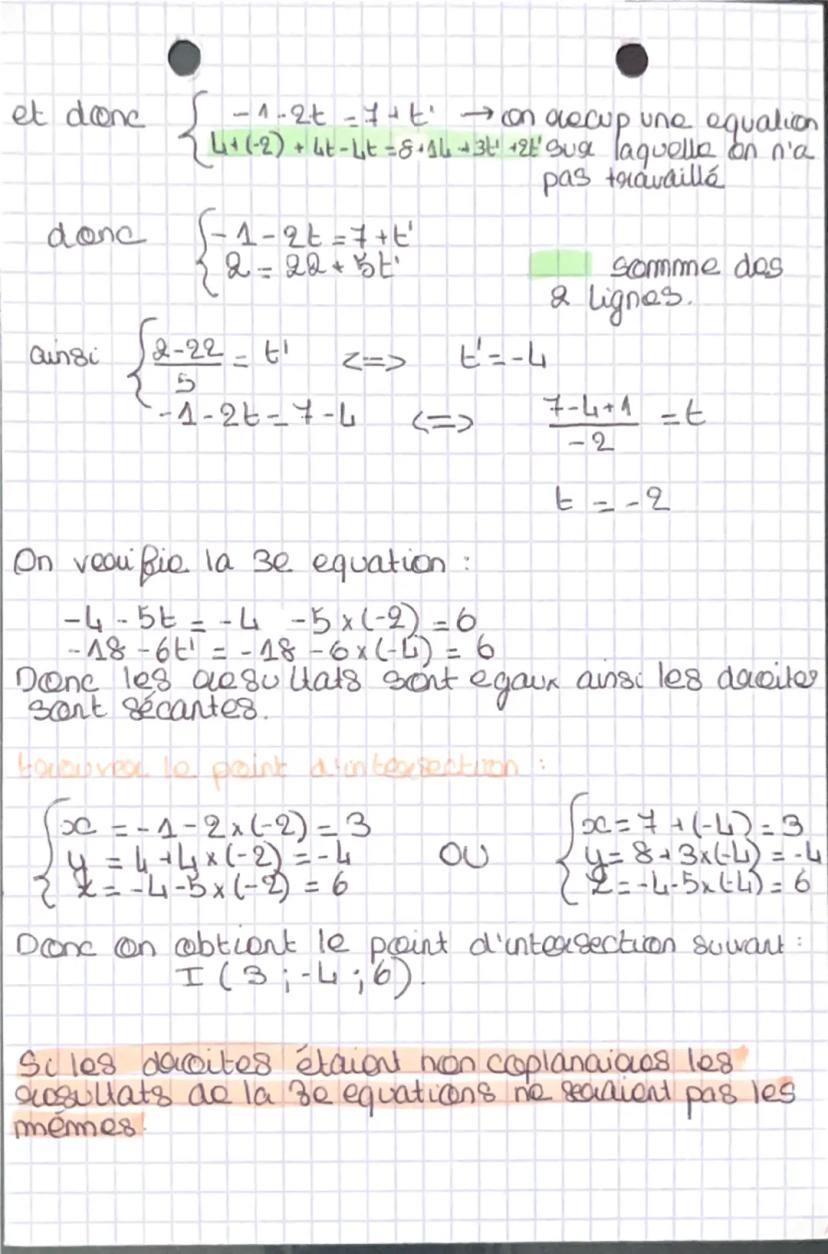 et donc { -1-2t = 7+t' → on récup une equation
4+(-2) + 4t-4t = 8+14+3t'+2t' sur laquelle on n'a
pas travaillé
donc { -1-2t = 7+t'
2 = 22 + 5t'
somme des
2 lignes.
ainsi { (2-22)/5 = t' <=> t' = -4
-1-2t = 7-4 <=> (7-4+1)/-2 = t
t = -2
On verifie la 3e equation :
-4-5t = -4 -5×(-2) = 6
-18-6t' = -18-6×(-4) = 6
Donc les resultats sont egaux ainsi les droites
sont sécantes.
trouver le point d'intersection :
{ x = -1-2×(-2) = 3
y = 4+4×(-2) = -4
z = -4-5×(-2) = 6
OU
{ x = 7+(-4) = 3
y = 8+3×(-4) = -4
z = -4-5×(-4) = 6
Donc on obtient le point d'intersection suivant :
I (3 ; -4 ; 6).
Si les droites étaient non coplanaires les
resultats de la 3e equations ne seraient pas les
mêmes.